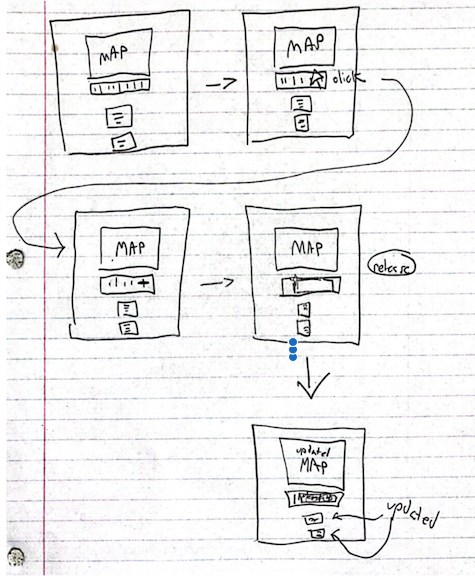 MAP
MAP
click
MAP
MAP
release
updated
MAP
updated